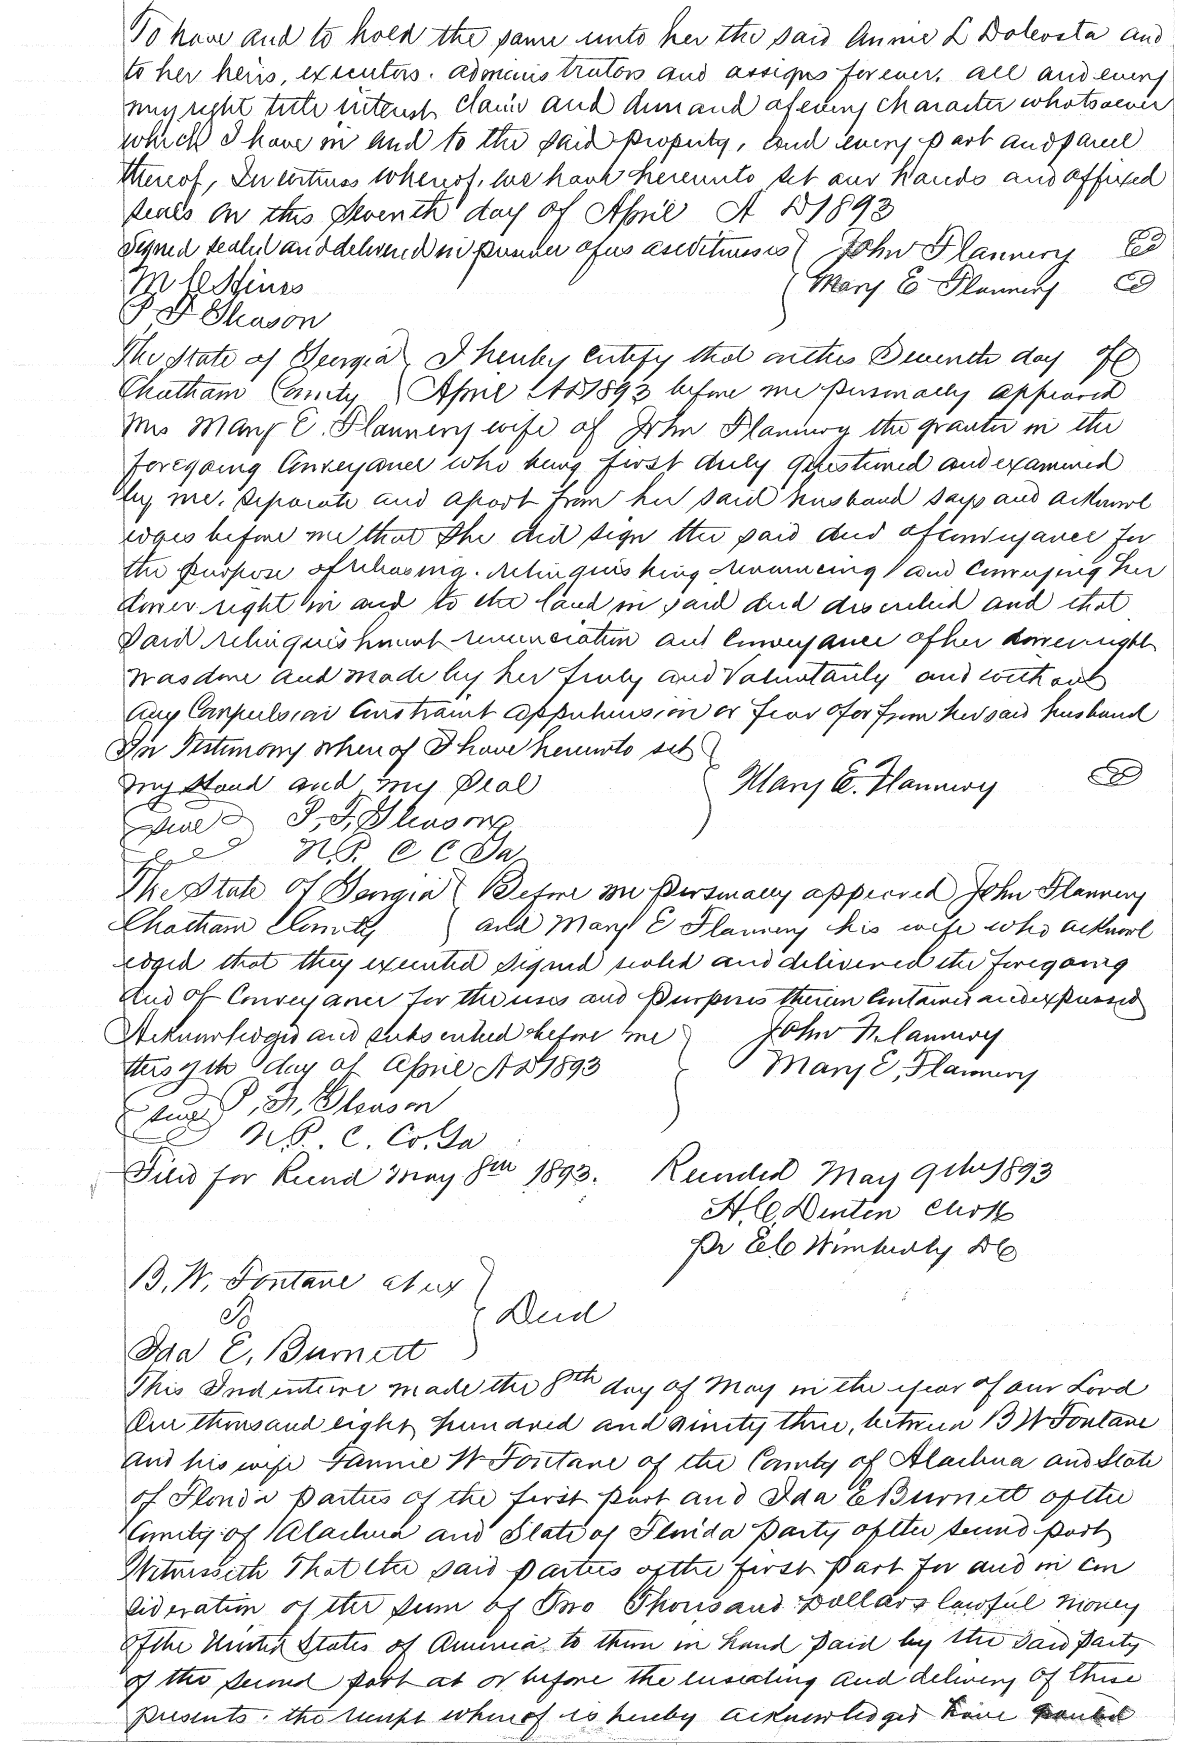 To have and to hold the same unto her the said Annie L Dolcosta and
to her heirs, executors. administrators and assigns forever. all and every
my right title interest claim and demand of every character whatsoever
which I have in and to the said property, and every part and parcel
thereof, In witness whereof, we have hereunto set our hands and affixed
seals on this Seventh day of April A D 1893
Signed sealed and delivered in presence of us as witnesses John Flannery
M C Hines Mary E Flannery
P. F Gleason
The State of Georgia I hereby certify that on this Seventh day of
Chatham County April AD 1893 before me personally appeared
Mrs Mary E. Flannery wife of John Flannery the grantor in the
foregoing Conveyance who being first duly questioned and examined
by me. separate and apart from her said husband says and acknowl
edges before me that she did sign the said deed of conveyance for
the purpose of releasing. relinquishing renouncing and conveying her
dower right in and to the land in said deed described and that
said relinquishment renunciation and conveyance of her dower right
was done and made by her freely and voluntarily and without
any Compulsion Constraint apprehension or fear of or from her said husband
In Testimony whereof I have hereunto set
my Hand and my Seal Mary E. Flannery
seal P. F. Gleason
N.P. C C Ga
The State of Georgia Before me personally appeared John Flannery
Chatham County and Mary E Flannery his wife who acknowl
edged that they executed signed sealed and delivered the foregoing
deed of Conveyance for the uses and purposes therein contained and expressed
Acknowledged and subscribed before me John Flannery
this 7th day of April AD 1893 Mary E, Flannery
seal P. F. Gleason
N.P. C. Co. Ga
Filed for Record May 8th 1893. Recorded May 9th 1893
H. C. Denton Clerk
Pr E C Wimberly D C
B. W. Fontane et ux
To Deed
Ida E. Burnett
This Indenture made the 8th day of May in the year of our Lord
One thousand eight hundred and ninety three, between B W Fontane
and his wife Fannie W Fontane of the County of Alachua and State
of Florida parties of the first part and Ida E Burnett of the
County of Alachua and State of Florida party of the second part
Witnesseth That the said parties of the first part for and in con
sideration of the sum of Two Thousand Dollars lawful money
of the United States of America to them in hand paid by the said party
of the second part at or before the ensealing and delivery of these
presents. the receipt whereof is hereby acknowledged have granted